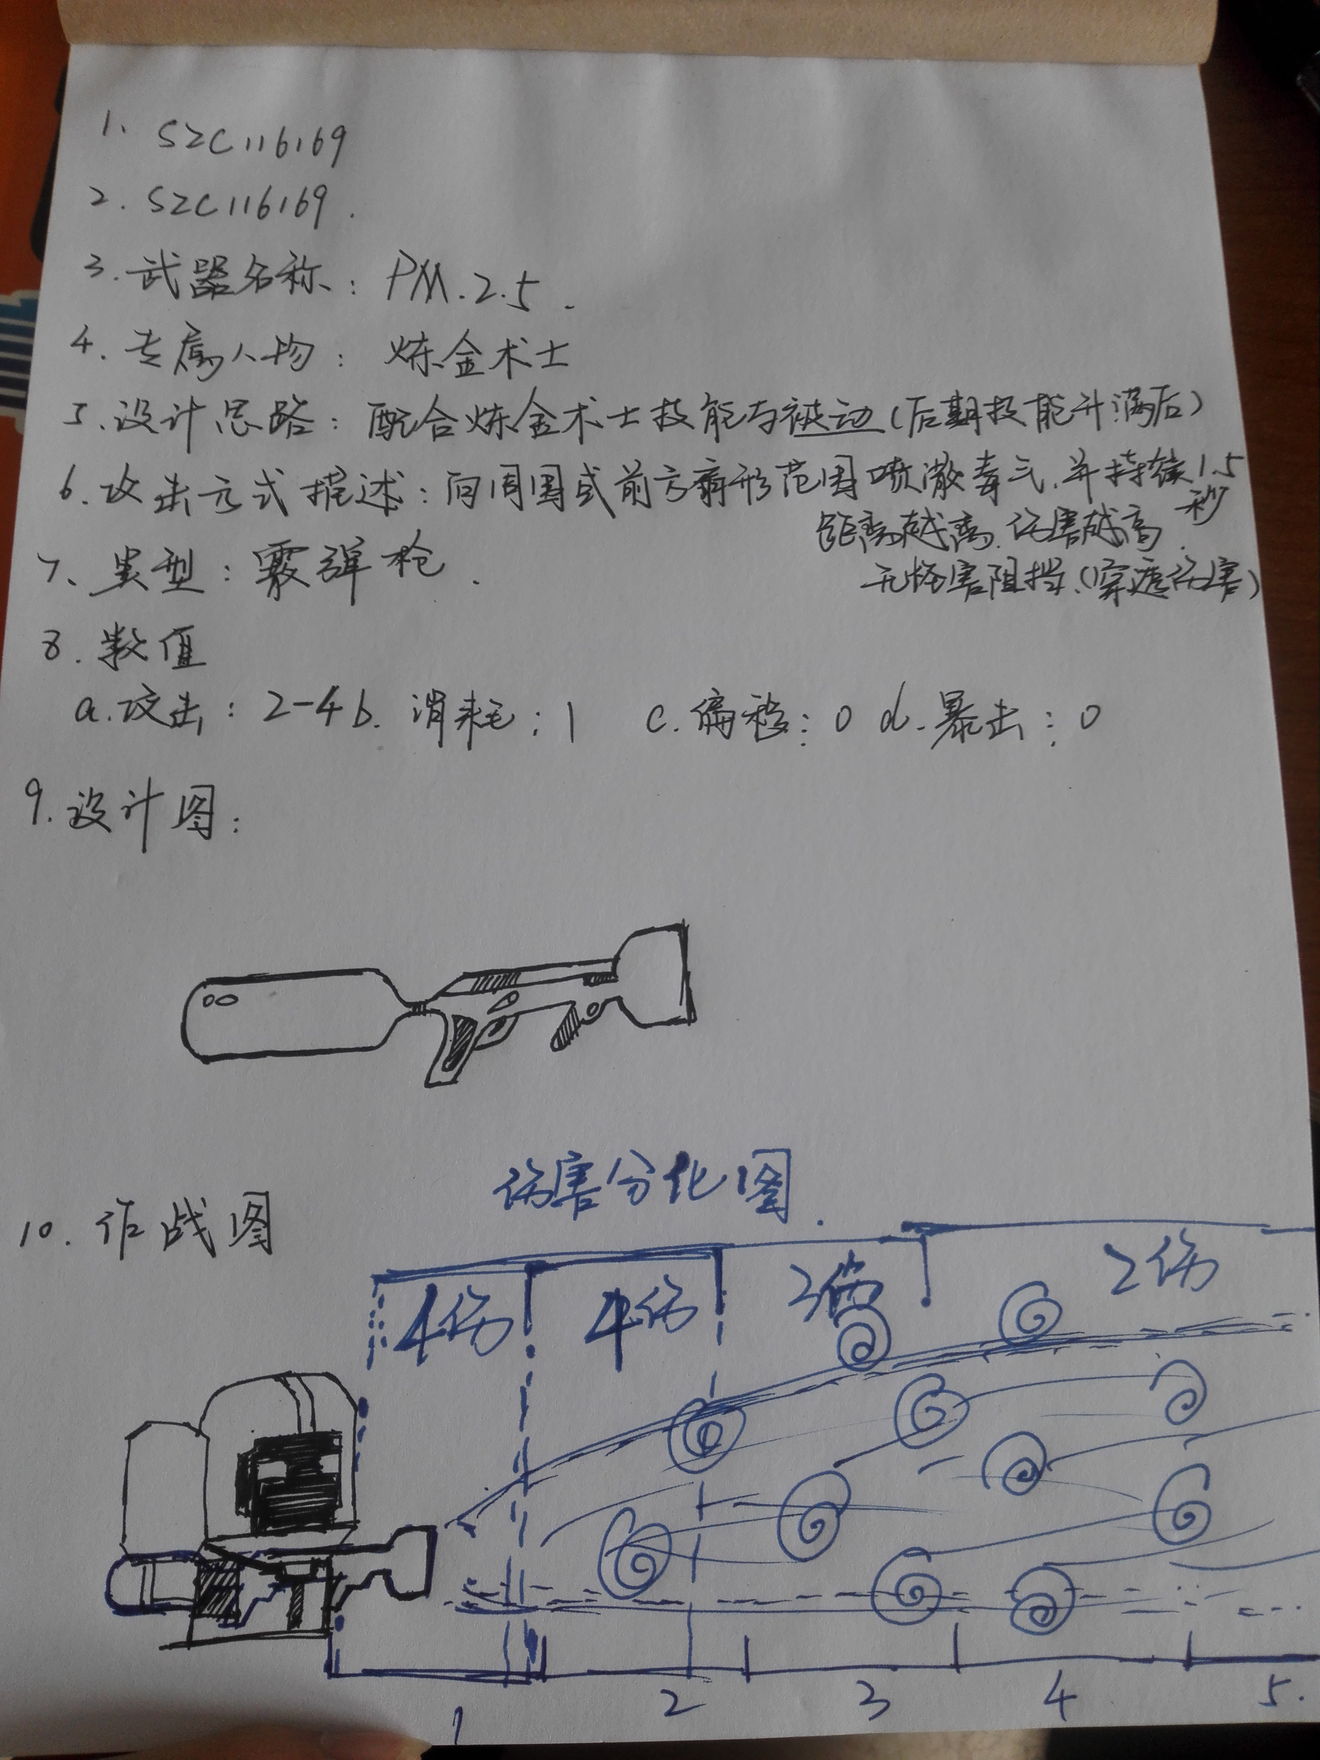 1. SZC116169
2. SZC116169.
3. 武器名称: PM.2.5.
4. 专属人物: 炼金术士
5. 设计思路: 配合炼金术士技能与被动(后期技能升满后)
6. 攻击方式描述: 向周围或前方扇形范围喷洒毒气,并持续1.5秒
距离越离,伤害越高.
无怪害阻挡.(穿透伤害)
7、类型: 霰弹枪.
8. 数值
a.攻击: 2-4 b. 消耗: 1 c.偏移: 0 d.暴击: 0
9.设计图:
伤害分化图.
10. 作战图
4伤 4伤 3伤 2伤
1 2 3 4 5.